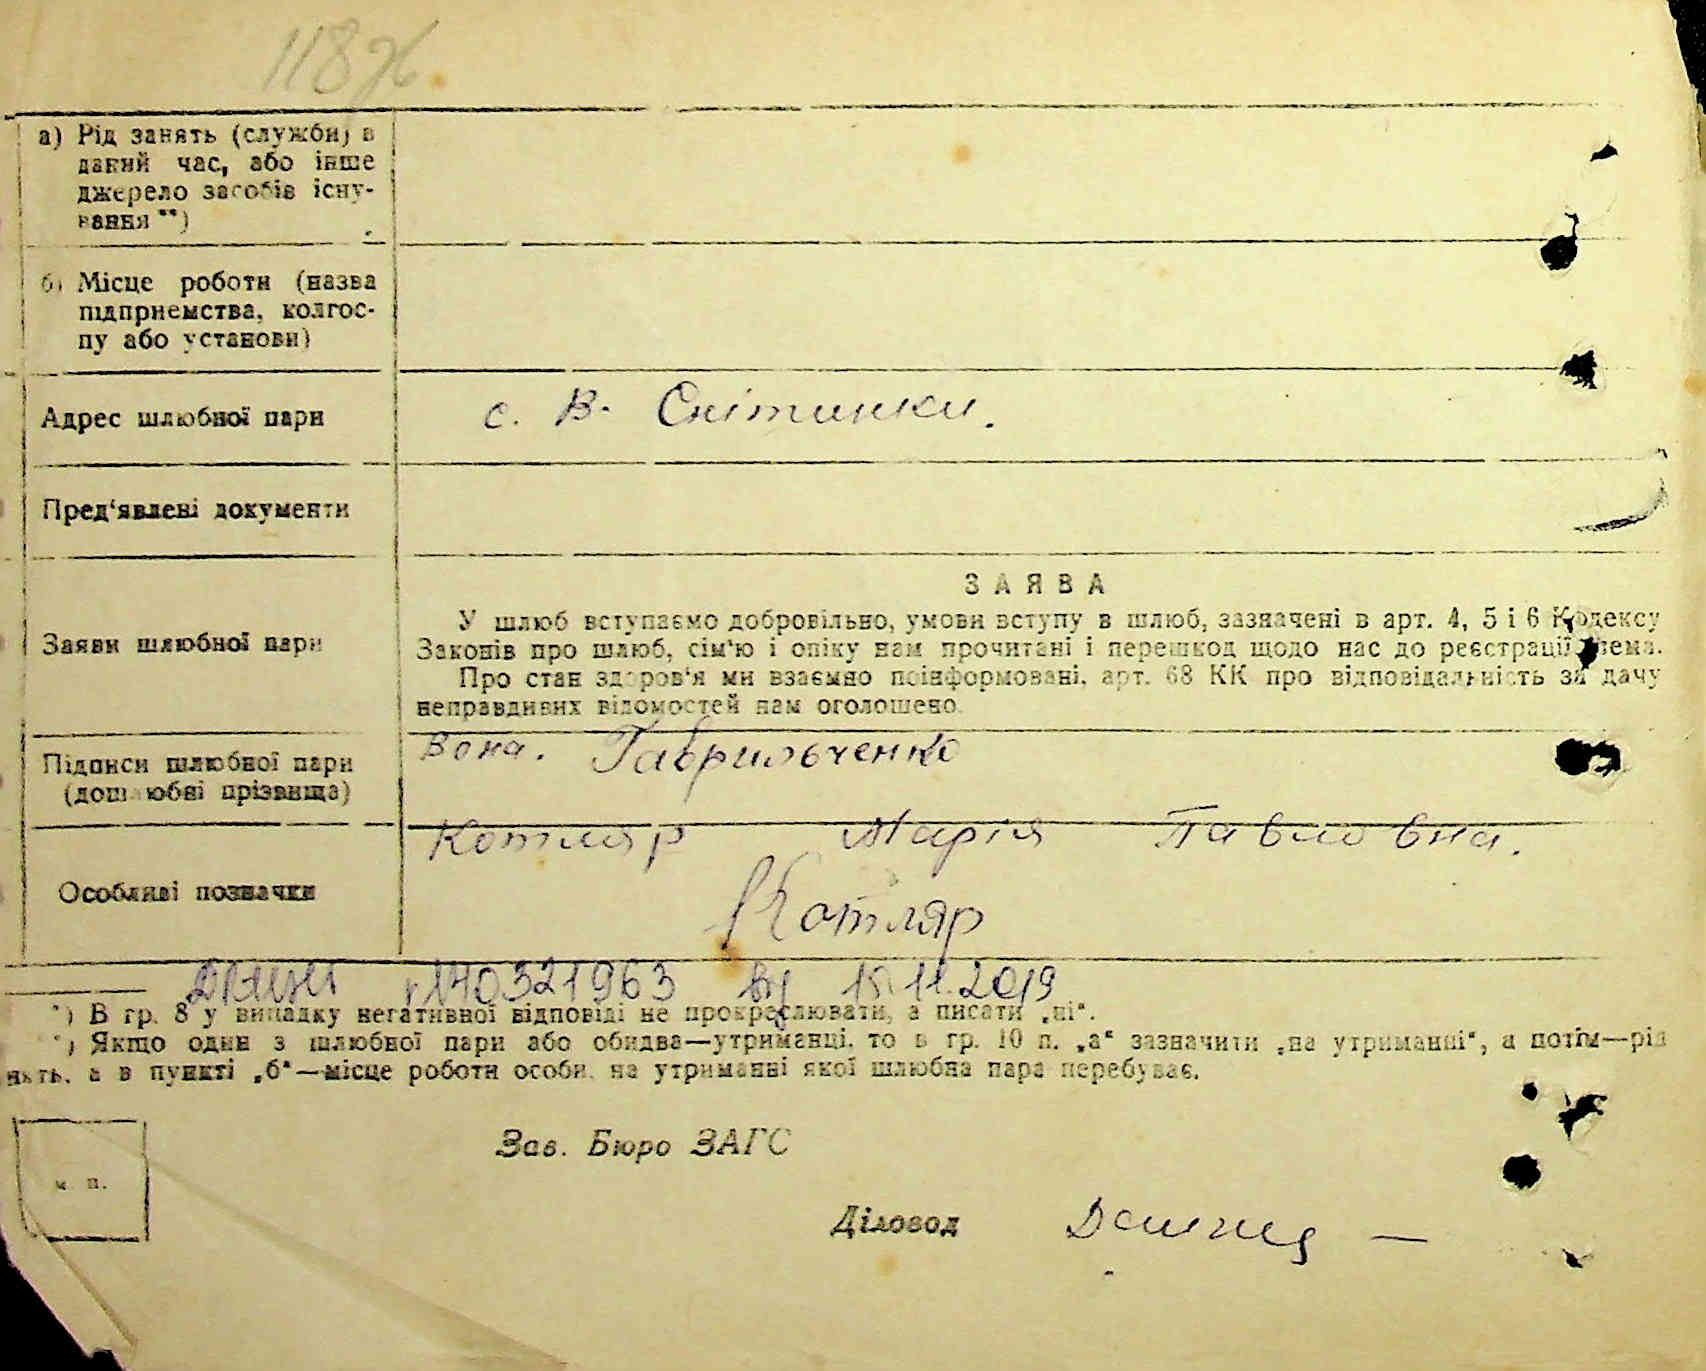 118
а) Рід занять (служби) в
даний час, або інше
джерело засобів існу-
вання **)
б) Місце роботи (назва
підприємства, колгос-
пу або установи)
Адрес шлюбної пари
с. В. Снітинки.
Пред‘явлені документи
Заяви шлюбної пари
ЗАЯВА
У шлюб вступаємо добровільно, умови вступу в шлюб, зазначені в арт. 4, 5 і 6 Кодексу
Законів про шлюб, сім‘ю і опіку нам прочитані і перешкод щодо нас до реєстрації нема.
Про стан здоров‘я ми взаємно поінформовані, арт. 68 КК про відповідальність за дачу
неправдивих відомостей нам оголошено.
Підписи шлюбної пари
(дошлюбні прізвища)
Вона. Гаврильченко
Котляр Марія Павловна.
Особливі позначки
Котляр
№40321963 від 15.11.2019
*) В гр. 8 у випадку негативної відповіді не прокреслювати, а писати „ні“.
*) Якщо один з шлюбної пари або обидва—утриманці, то в гр. 10 п. „а“ зазначити „на утриманні“, а потім—рід
нять, а в пункті „б“—місце роботи особи, на утриманні якої шлюбна пара перебуває.
Зав. Бюро ЗАГС
м. п.
Діловод